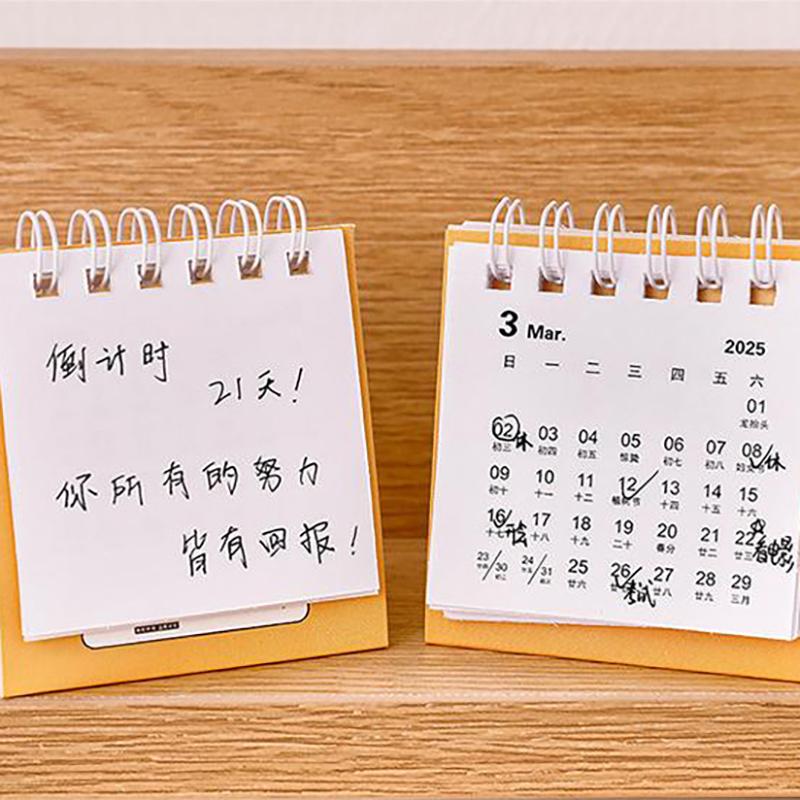 倒计时
21天!
你所有的努力
皆有回报!
3 Mar. 2025
日 一 二 三 四 五 六
01
龙抬头
02 休 03 04 05 06 07 08 休
初三 初四 初五 惊蛰 初七 初八 妇女节
09 10 11 12 13 14 15
初十 十一 十二 植树节 十四 十五 十六
16 开会 17 18 19 20 21 22
十七 十八 十九 二十 春分 廿二 廿三 看电影
23/30 24/31 25 26 27 28 29
廿六 考试 廿八 廿九 三月